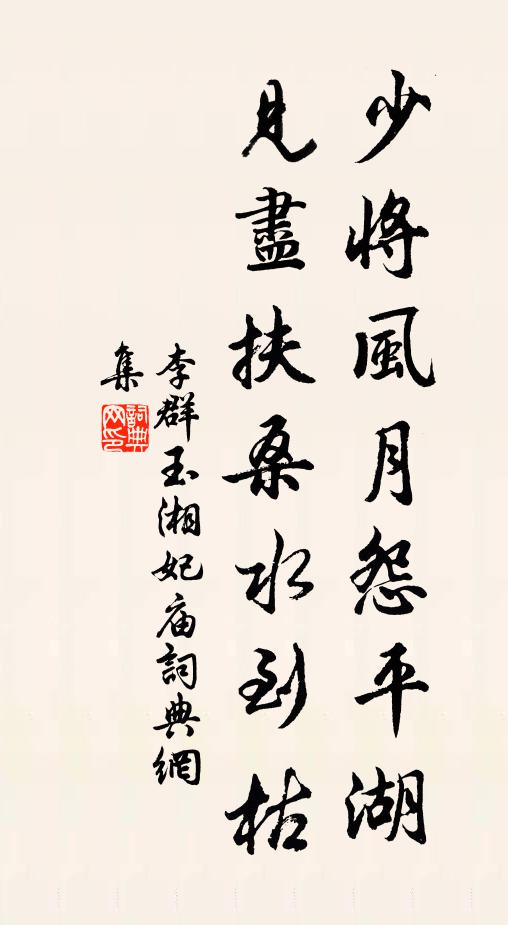 少將風月怨平湖
見盡扶桑水到枯
李群玉湘妃庙詞典網
集
詞典网印